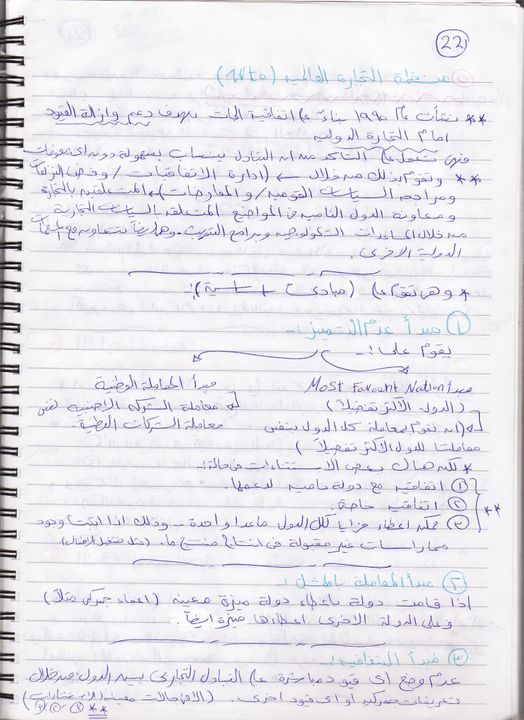 22
منظمة التجارة العالمية (WTO)
** نشأت عام 1995 بناءً على اتفاقية الجات بهدف دعم وإزالة القيود
أمام التجارة الدولية
فهي تعمل على التأكد من أن التبادل ينساب بسهولة دون أي معوقات
** وتقوم بذلك من خلال ← (إدارة الاتفاقيات / وفض النزاعات
ومراجعة السياسات القومية / والمفاوضات) المتعلقة بالتجارة
ومعاونة الدول النامية في المواضيع المتعلقة بالسياسات التجارية
من خلال المساعدات التكنولوجية وبرامج التدريب. وهي أيضاً تتعاون مع
الدولية الأخرى.
* وهي تقوم على (مبادئ أساسية):-
① مبدأ عدم التمييز :-
يقوم على :-
مبدأ Most Favount Nation
مبدأ المعاملة الوطنية
(الدول الأكثر تفضيلاً)
معاملة الشركة الأجنبية نفس
(أن تقوم بمعاملة كل الدول بنفس
معاملة الشركات الوطنية.
معاملتنا للدول الأكثر تفضيلاً)
* لكن هناك بعض الاستثناءات في حالة :-
① اتفاقية مع دولة نامية لدعمها.
② اتفاقية خاصة.
** ③ يمكن إعطاء مزايا لكل الدول ماعدا واحدة - وذلك إذا أثبت وجود
ممارسات غير مقبولة في إنتاج منتج ما. (مثل تشغيل الأطفال)
② مبدأ المعاملة بالمثل :-
إذا قامت دولة بإعطاء دولة ميزة معينة (إعفاء جمركي مثلاً)
وعلى الدولة الأخرى إعطاءها ميزة أيضاً.
③ مبدأ الشفافية :-
عدم وضع أي قيود مباشرة على التبادل التجاري بين الدول من خلال
تعريفات جمركية أو أي قيود أخرى. (إلا في حالات معينة (الاستثناءات)
** ①②③